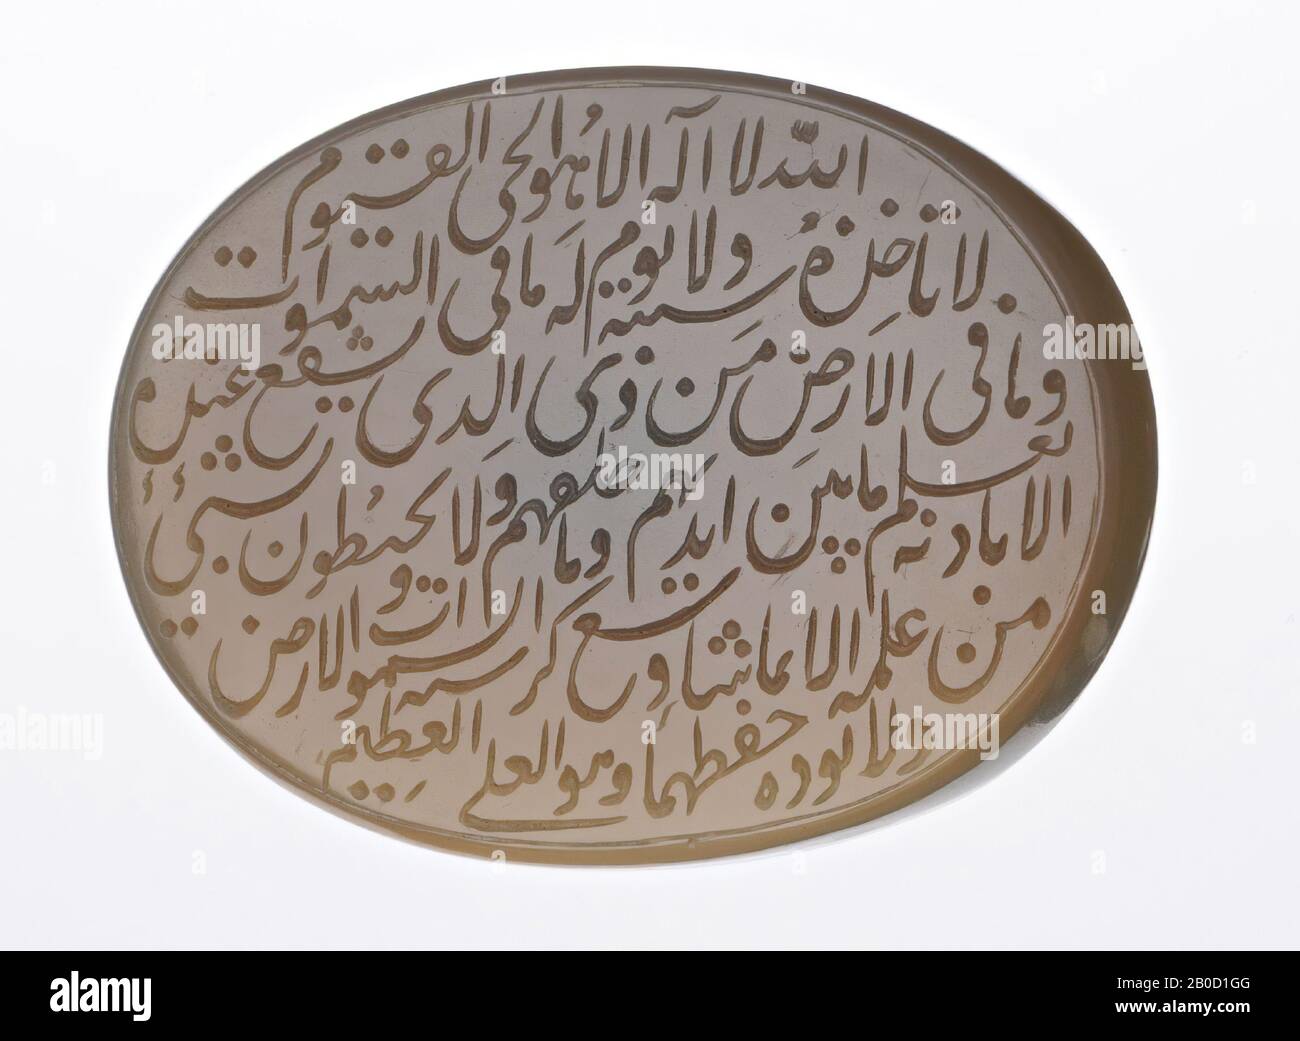 الله لا اله الا هو الحی القیوم
لا تاخذه سنة ولا نوم له ما فی السموات
وما فی الارض من ذی الذی یشفع عنده
الا باذنه یعلم ما بین ایدیهم وما خلفهم ولا یحیطون بشیء
من علمه الا بما شاء وسع کرسیه السموات والارض
ولا یوده حفظهما وهو العلی العظیم
alamy
Image ID: 2B0D1GG
www.alamy.com